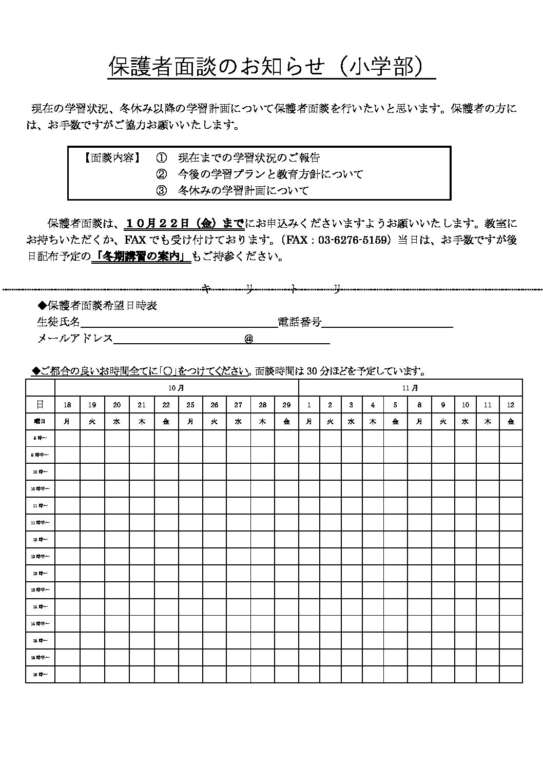 保護者面談のお知らせ（小学部）
現在の学習状況、冬休み以降の学習計画について保護者面談を行いたいと思います。保護者の方に
は、お手数ですがご協力お願いいたします。
【面談内容】 ① 現在までの学習状況のご報告
② 今後の学習プランと教育方針について
③ 冬休みの学習計画について
保護者面談は、１０月２２日（金）までにお申込みくださいますようお願いいたします。教室に
お持ちいただくか、FAX でも受け付けております。（FAX：03-6276-5159）当日は、お手数ですが後
日配布予定の「冬期講習の案内」もご持参ください。
キ リ ト リ
◆保護者面談希望日時表
生徒氏名 電話番号
メールアドレス ＠
◆ご都合の良いお時間全てに「〇」をつけてください。面談時間は 30 分ほどを予定しています。
10 月 11 月
日 18 19 20 21 22 25 26 27 28 29 1 2 3 4 5 8 9 10 11 12
曜日 月 火 水 木 金 月 火 水 木 金 月 火 水 木 金 月 火 水 木 金